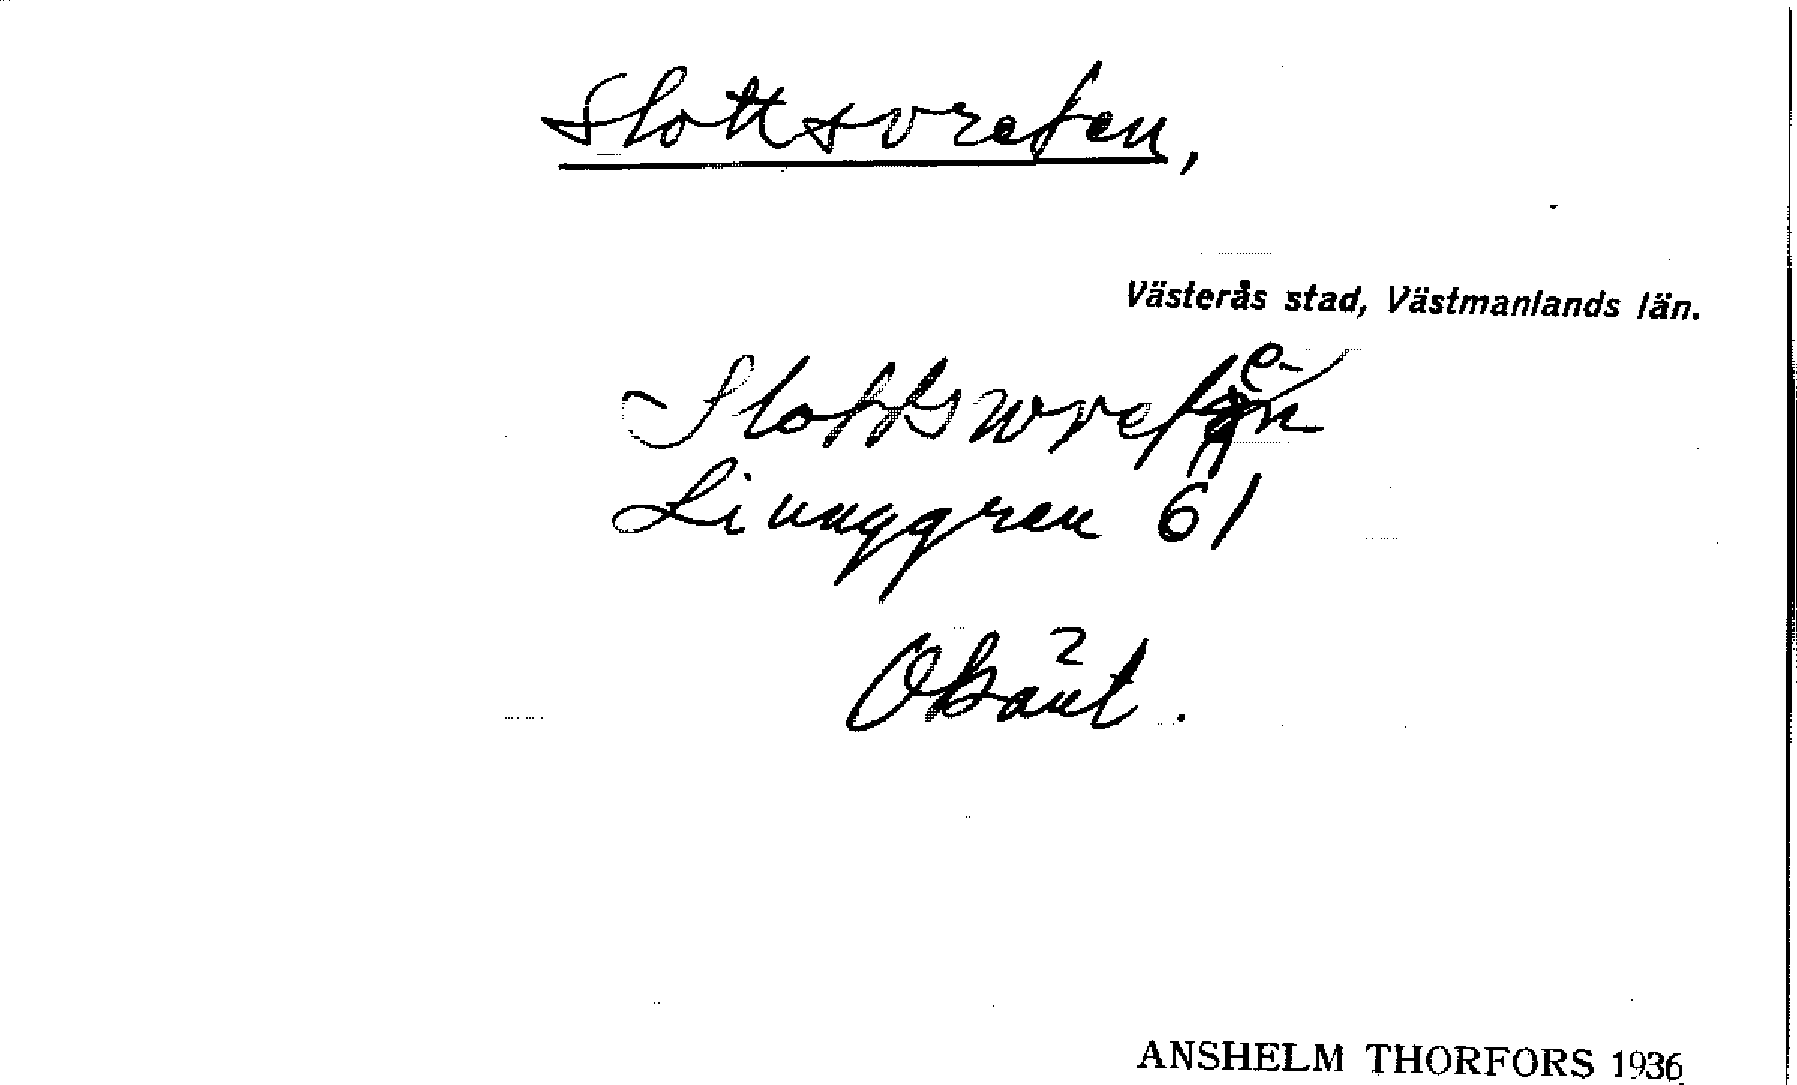 Slottsvreten,
Västerås stad, Västmanlands län.
Slottswreten
Liunggren 61
Okänt.
ANSHELM THORFORS 1936